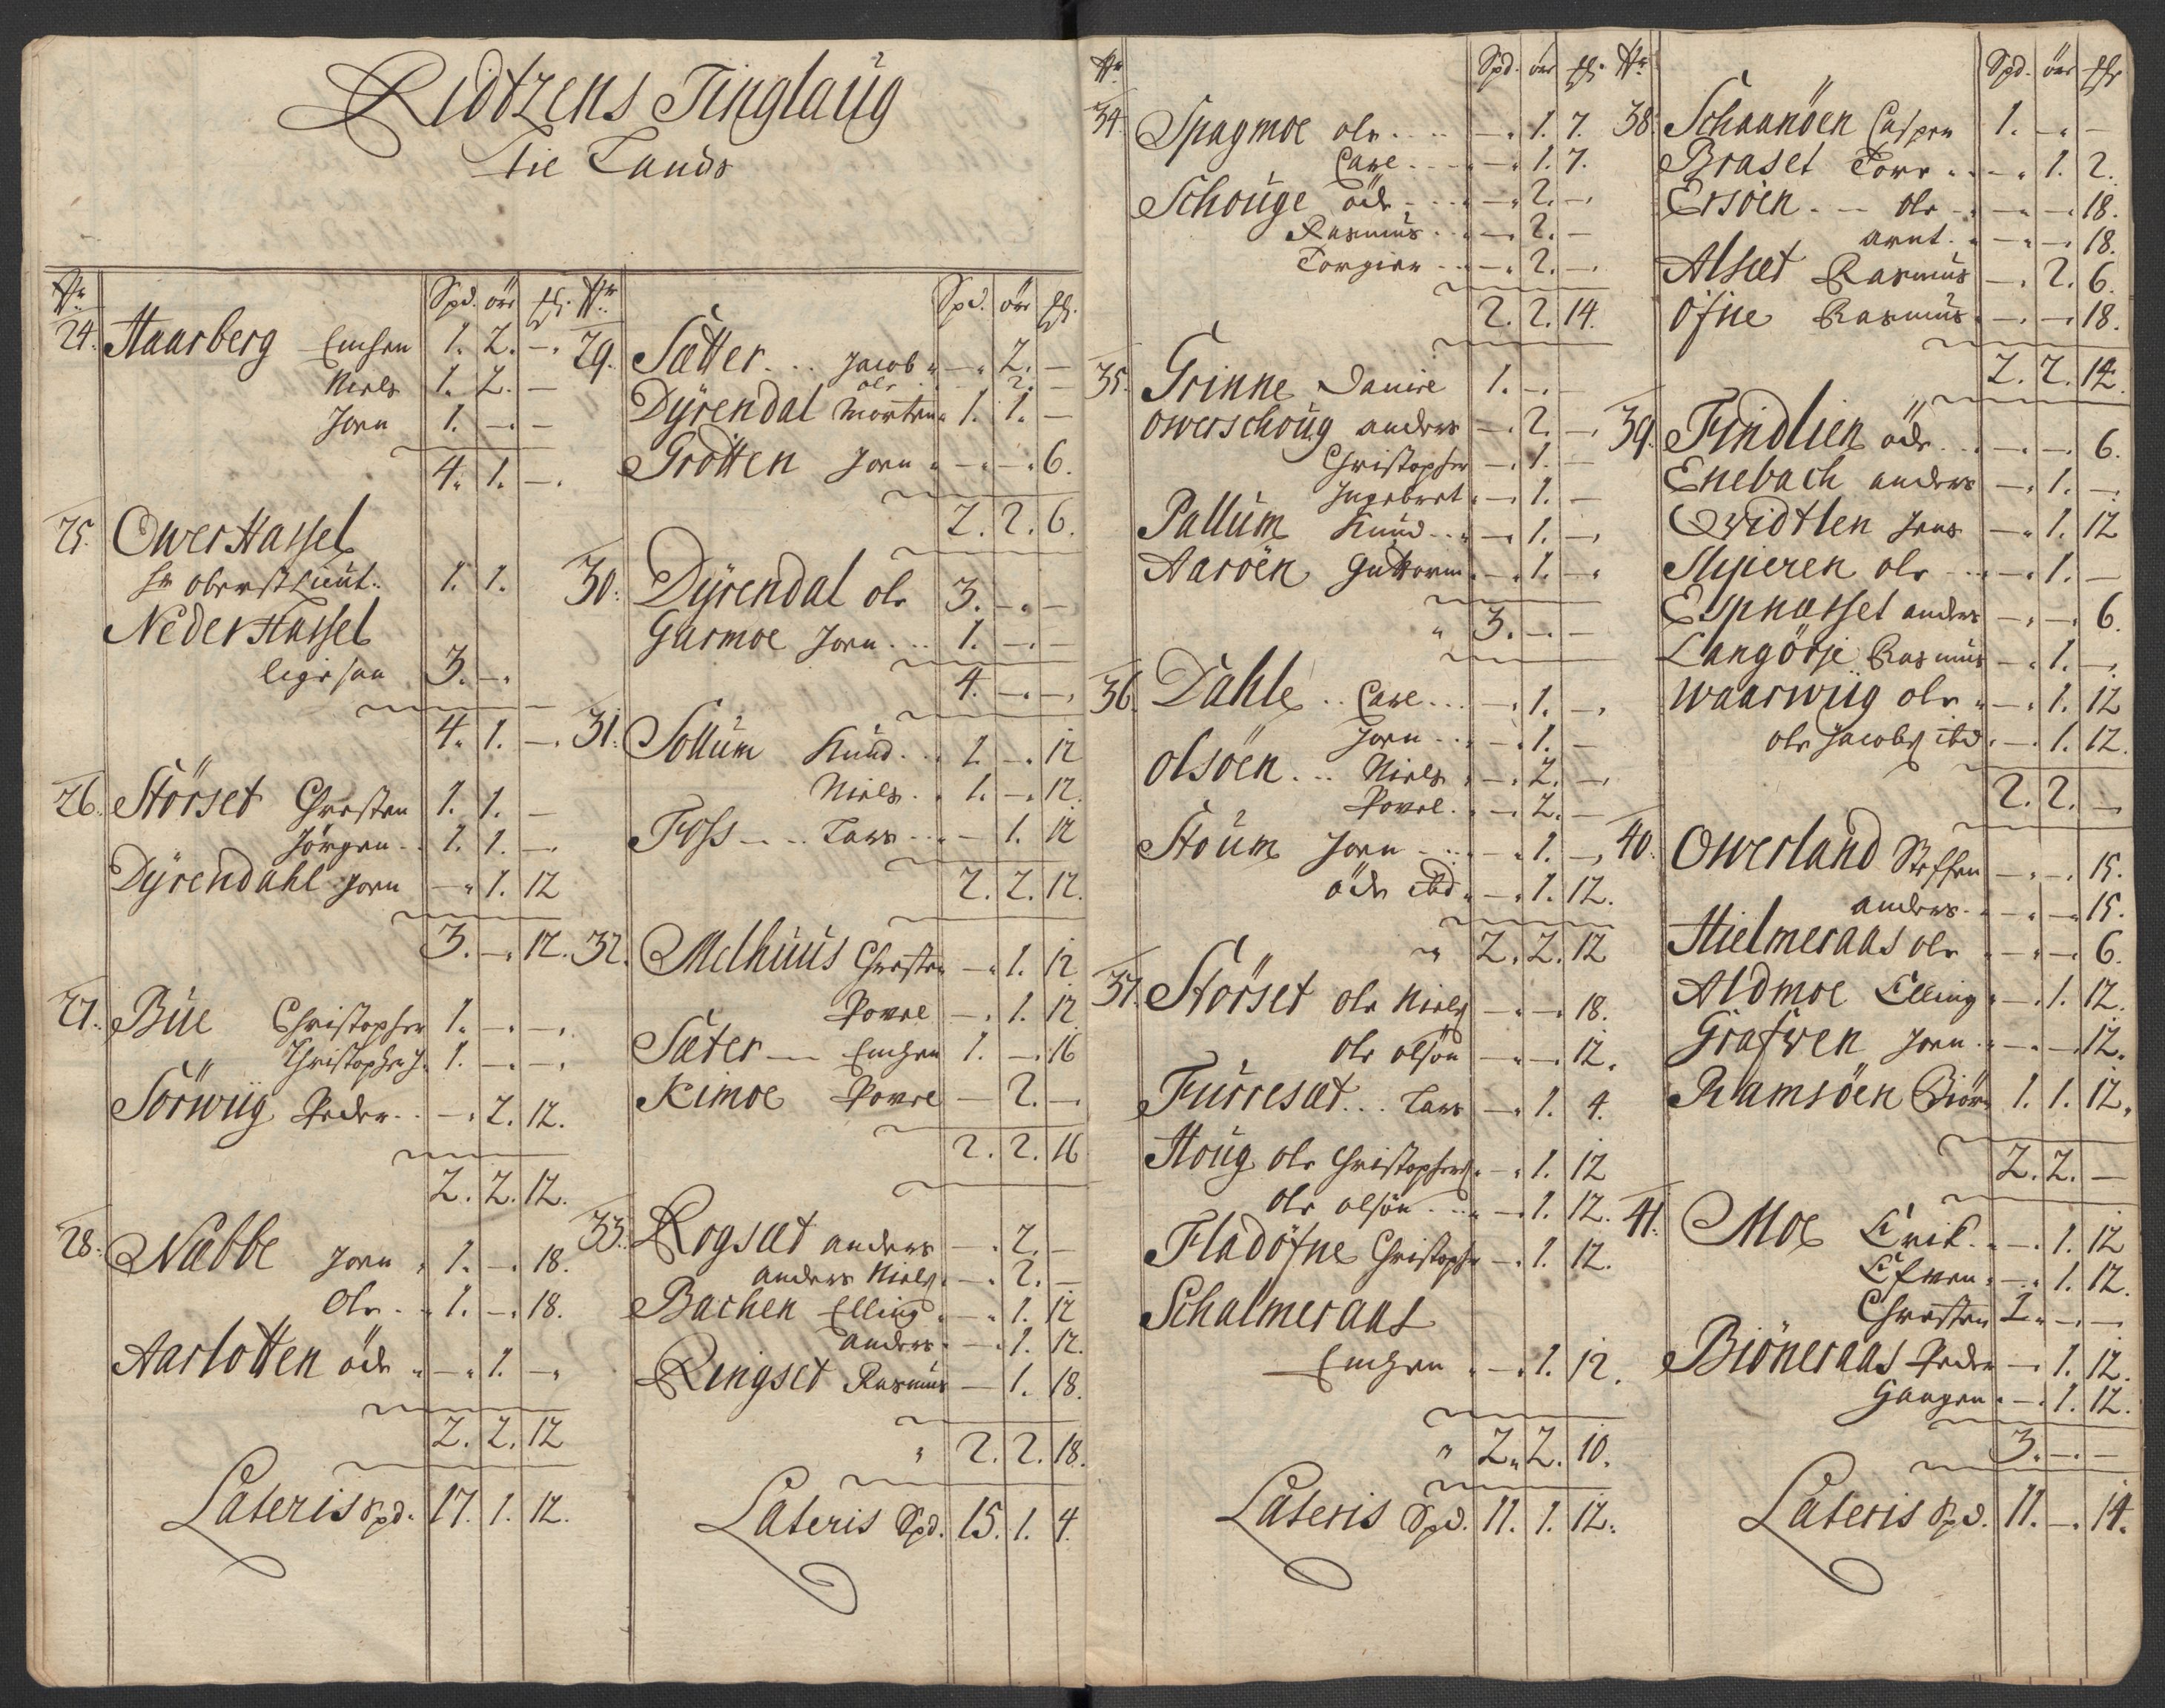 Ridtzens Tinglaug
Til Lands
Nr. Spd. ör ß.
24. Haarberg Einchen 1. 2. -.
Niels 1. 2. -
Joen 1. -. -
4. 1. -.
25. Ower Hassel
Hr Oberst Lieut: 1. 1.
Neder Hassel
ligesaa 3. -.
4. 1. -.
26. Störset Christen 1. 1. -
Jörgen 1. 1. -.
Dÿrendahl Joen -. 1. 12
3. -. 12.
27. Büe Christopher 1. -. -.
Christopher J. 1. -. -.
Sörwiig Peder -. 2. 12.
2. 2. 12.
28. Nabbe Joen 1. -. 18.
Ole 1. -. 18.
Aarlotten öde -. 1. -.
2. 2. 12
Lateris Spd. 17. 1. 12.
Nr. Spd. ör ß.
29. Sætter Jacob -. 2. -
ole 2. -
Dÿrendal Morten 1. 1. -
Grötten Joen -. -. 6.
2. 2. 6.
30. Dÿrendal ole 3. -. -
Garmoe Joen 1. -. -
4. -. -.
31. Sollüm Knüd 1. -. 12
Niels 1. -. 12.
Foss Lars - 1. 12
2. 2. 12.
32. Melhuüs Christen -. 1. 12
Powel -. 1. 12
Sæter Einchen 1. -. 16
Kimoe Powel - 2. -.
2. 2. 16
33. Rogsæt anders -. 2. -
anders Niels. -. 2. -
Bachen Elling -. 1. 12
anders -. 1. 12.
Ringset Rasmus - 1. 18.
2. 2. 18.
Lateris Spd. 15. 1. 4.
Nr. Spd. ör ß.
34. Spagmoe ole -. 1. 7.
Carl -. 1. 7.
Schoüge öde -. 2. -.
Rasmüs -. 2. -
Torgier -. 2. -.
2. 2. 14.
35. Grinne 1. -.
Owerschoüg anders -. 2. -.
Christopher -. 1. -
Ingebret -. 1. -
Pallüm Knüd -. 1. -.
Aaröen Guttorm -. 1. -.
3. -. -
36. Dahle Carl -. 1. -.
Joen -. 1. -
Olsöen Niels -. 2. -.
Powel -. 2. -
Stoüm Joen -. 1. -.
öde ibd -. 1. 12.
2. 2. 12
37. Störset ole Niels. -. -. 18.
ole olsön -. -. 12.
Fürresæt Lars -. 1. 4.
Hoüg ole Christophers. -. 1. 12
ole olsön -. 1. 12.
Fladöfne Christopher -. 1. 12.
Schalmeraas
Einchen -. 1. 12.
2. 2. 10.
Lateris Spd. 11. 1. 12.
Nr. Spd. ör ß
38. Schaanöen Casper 1. -. -
Braset Tore -. 1. 2.
Ersöen ole -. -. 18.
arnt -. -. 18.
Alsæt Rasmüs -. 2. 6.
Öfne Rasmüs -. -. 18.
2. 2. 14.
39. Findlien öde -. -. 6.
Enebach anders -. 1. -.
Qvidtlen Jens -. 1. 12
Sliperen ole -. 1. -
Espnæsset anders -. -. 6.
Langörje Rasmüs -. 1. -.
Waarwiig ole -. 1. 12
ole Jacobs. ibd. -. 1. 12.
2. 2. -
40. Owerland Steffen -. -. 15.
anders -. -. 15.
Hielmeraas ole -. -. 6.
Aldmoe Elling -. 1. 12.
Grafwen Joen -. -. 12.
Ramsöen Biör 1. 1. 12.
2. 2. -
41. Moe Erik -. 1. 12
Efwen -. 1. 12.
Christen 1. -. -
Biöneraas Peder -. 1. 12.
Haagen -. 1. 12.
3. -. -
Lateris Spd. 11. -. 14.